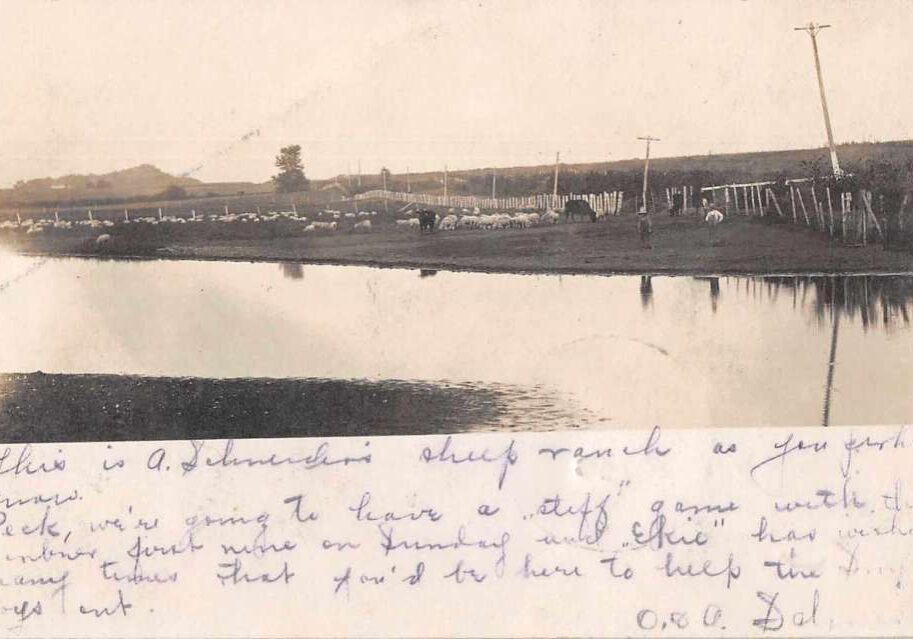 This is A. Schneider's sheep ranch as you
know.
Peck, we're going to have a „stiff" game with
first nine on Sunday and „Ekie" has
many times that you'd be here to help the
out.
O. & O.